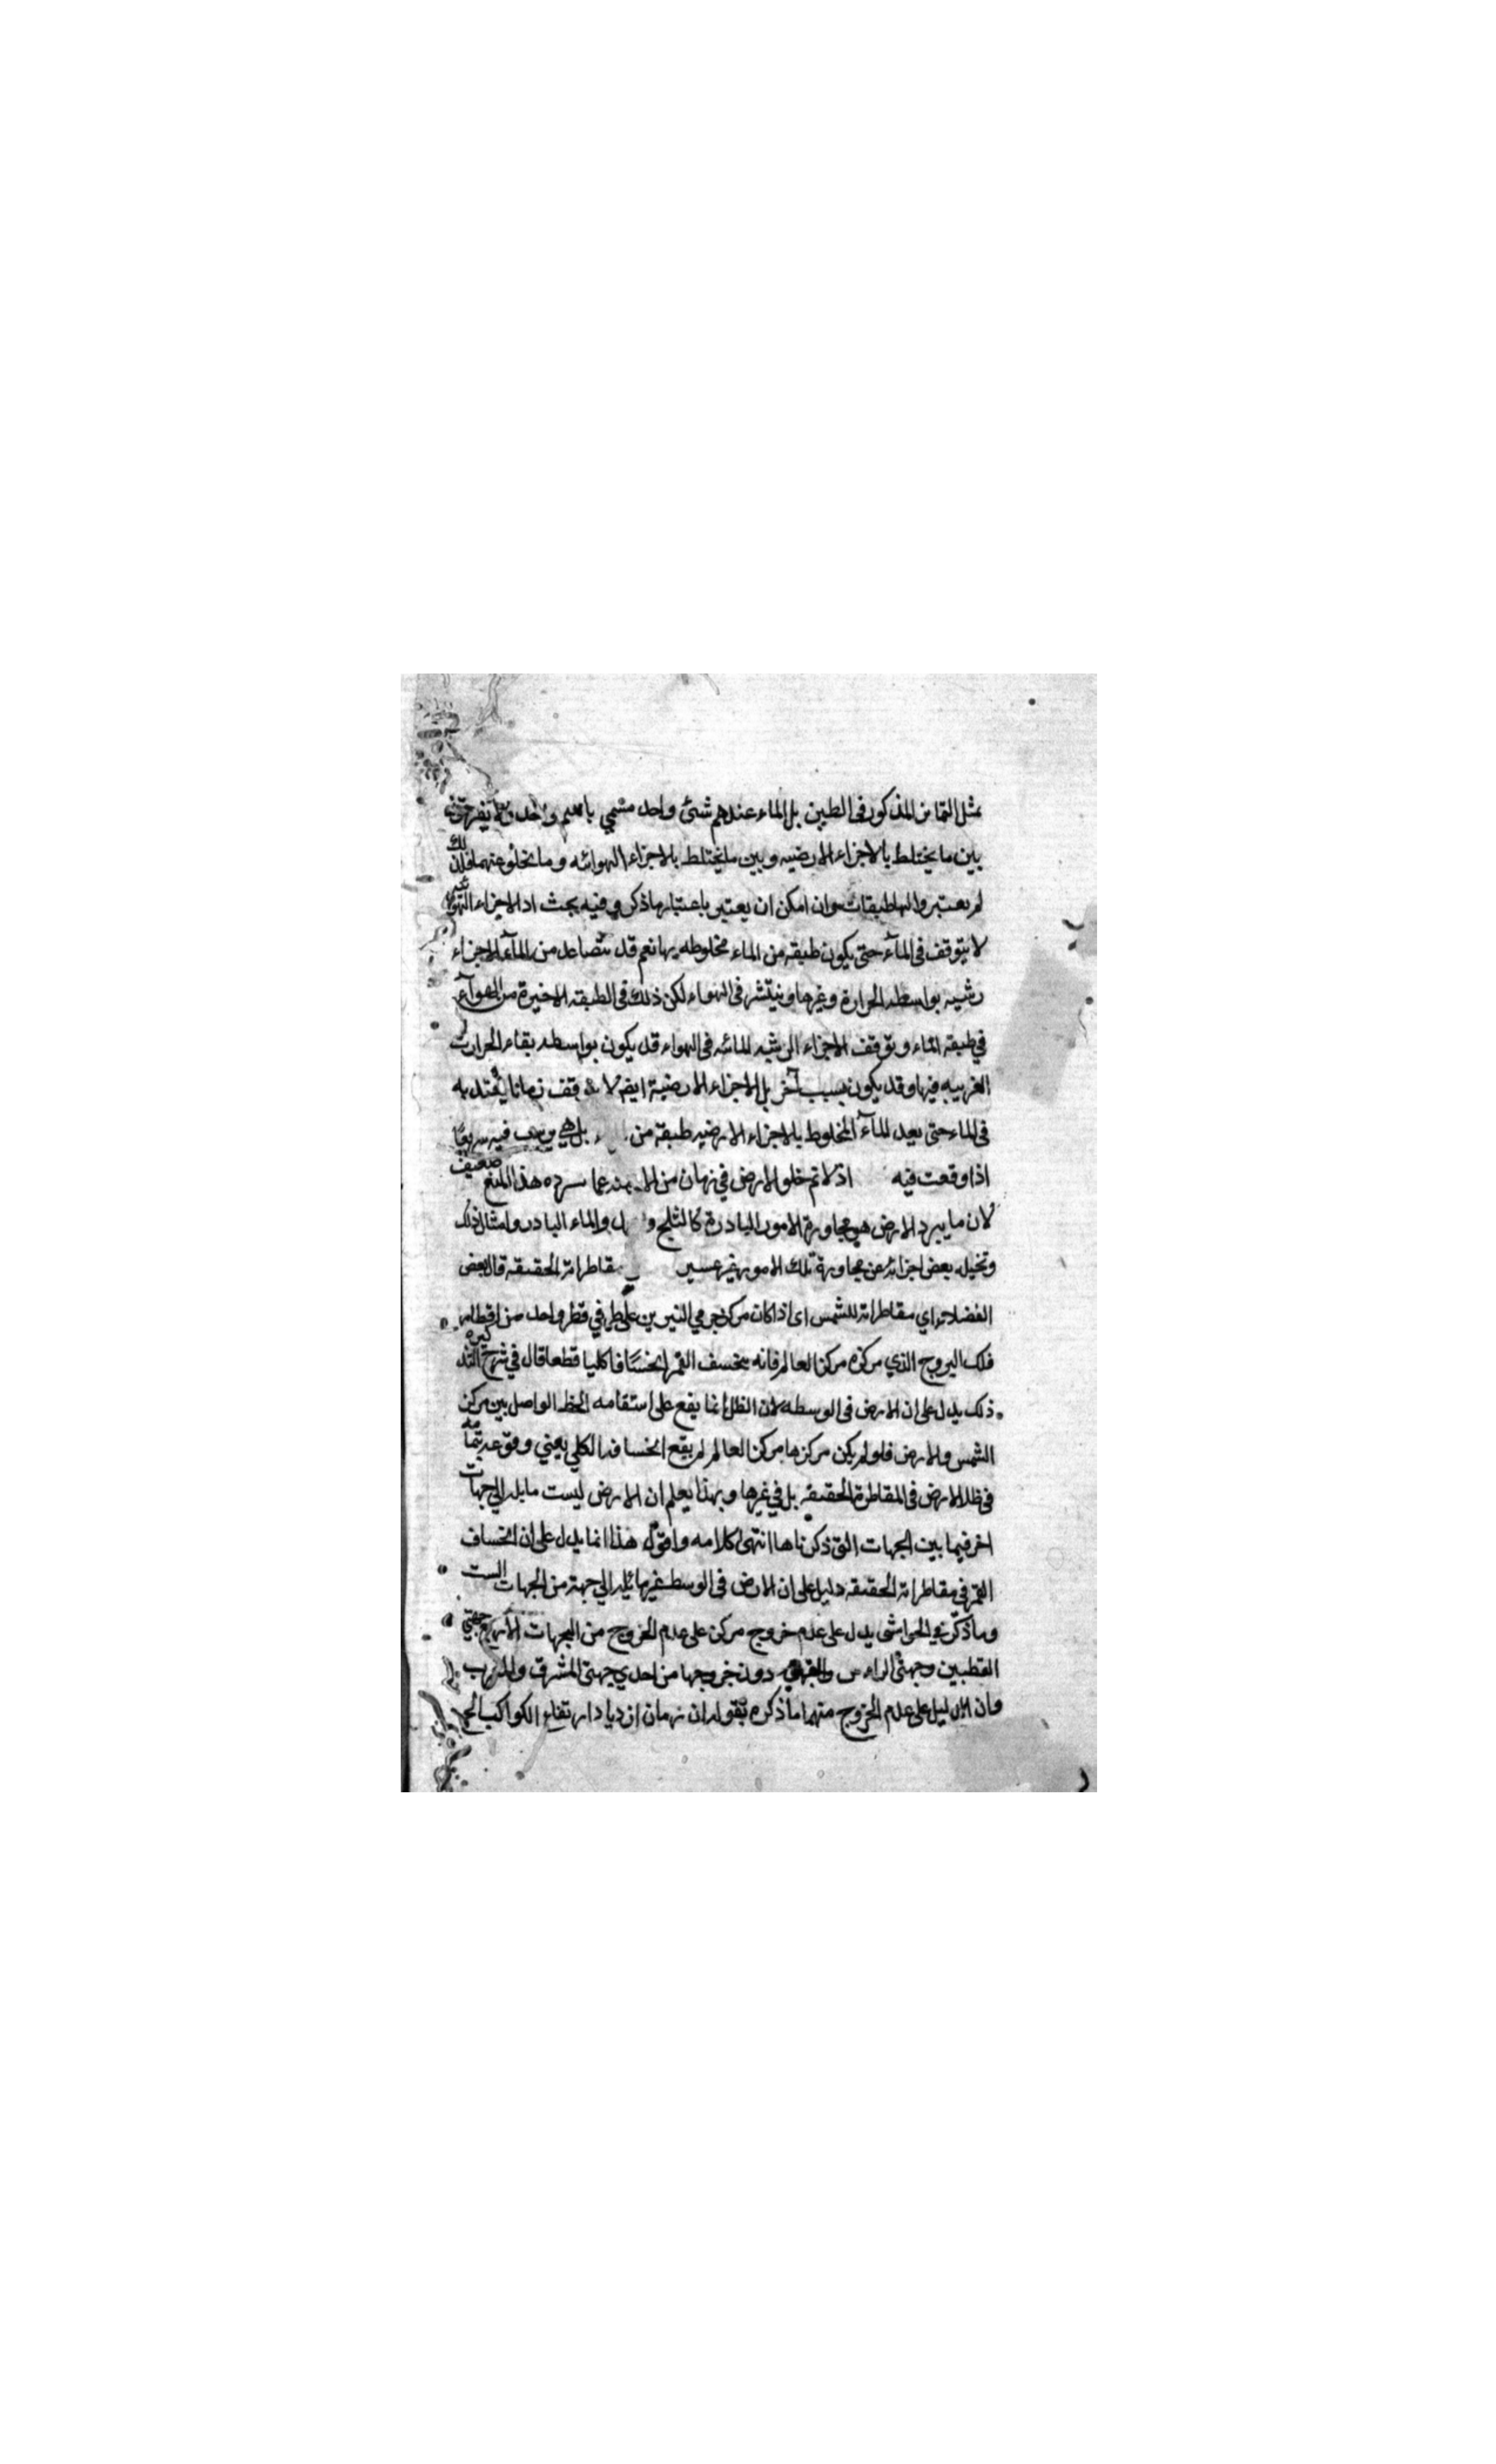 مثل التمايز المذكور فى الطين بل الماء عندهم شئ واحد مسمي باسم واحد
بين ما يختلط بالاجزاء الارضيه و بين ما يختلط بالاجزاء الهوائه و ما يخلو عنهما فلذلك
لم يعتبروا لها طبقات وان امكن ان يعتبر باعتبار ما ذكر و فيه بحث اذ الاجزاء الهوائيه
لا يتوقف فى المآء حتى يكون طبقه من الماء مخلوطه بها نعم قد يتصاعد من المآء الاجزاء
رشيه بواسطه الحرارة وغيرها و ينتشر فى الهواء لكن ذلك فى الطبقه الاخيرة من الهوآء
في طبقه الماء و توقف الاجزاء الرشيه المائه فى الهواء قد يكون بواسطه بقاء الحرارت
الغريبه فيها و قد يكون بسبب آخر بل الاجزاء الارضية ايضا لا يتوقف زمانا يعتد به
فى الماء حتى يعد المآء المخلوط بالاجزاء الارضيه طبقة من بل هي يرسب فيه سريعا
اذا وقعت فيه اذ لا تم خلو الارض في زمان من عما هذا المنع ضعيف
لان ما يبرد الارض هي مجاورة الامور الباردة كالثلج و والماء البادر وامثال ذلك
وتخيل بعض اجزائه عن مجاورة تلك الامور غير عسير مقاطراته الحقيقه قال بعض
الفضلاء اي مقاطراته للشمس اى اذا كان مركز جرمي النيرين على طرفي قطر واحد من اقطار
فلك البروج الذي مركزه مركز العالم فانه ينخسف القمر انخسافا كليا قطعا قال في شرح التذكره
ذلك يدل على ان الارض فى الوسط لان الظل انما يقع على استقامه الخط الواصل بين مركز
الشمس والارض فلو لم يكن مركزها مركز العالم لم يقع انخسافه الكلي يعني وقوعه بتمامه
فى ظل الارض فى المقاطرة الحقيقه بل في غيرها و بهذا يعلم ان الارض ليست مايله الي جهات
اخر فيما بين الجهات التى ذكرناها انتهى كلامه و اقول هذا انما يدل على ان انخساف
القمر فى مقاطراته الحقيقه دليل على ان الارض فى الوسط غير مائله الي جهة من الجهات الست
وما ذكر في الحواشى يدل على عدم خروج مركز على عدم الخروج من الجهات الاربع جهتي
القطبين وجهتى الراس والقدم دون خروجها من احدي جهتى المشرق والمغرب
وان الدليل على عدم الخروج منهما ما ذكره بقوله ان زمان ازدياد ارتفاع الكواكب